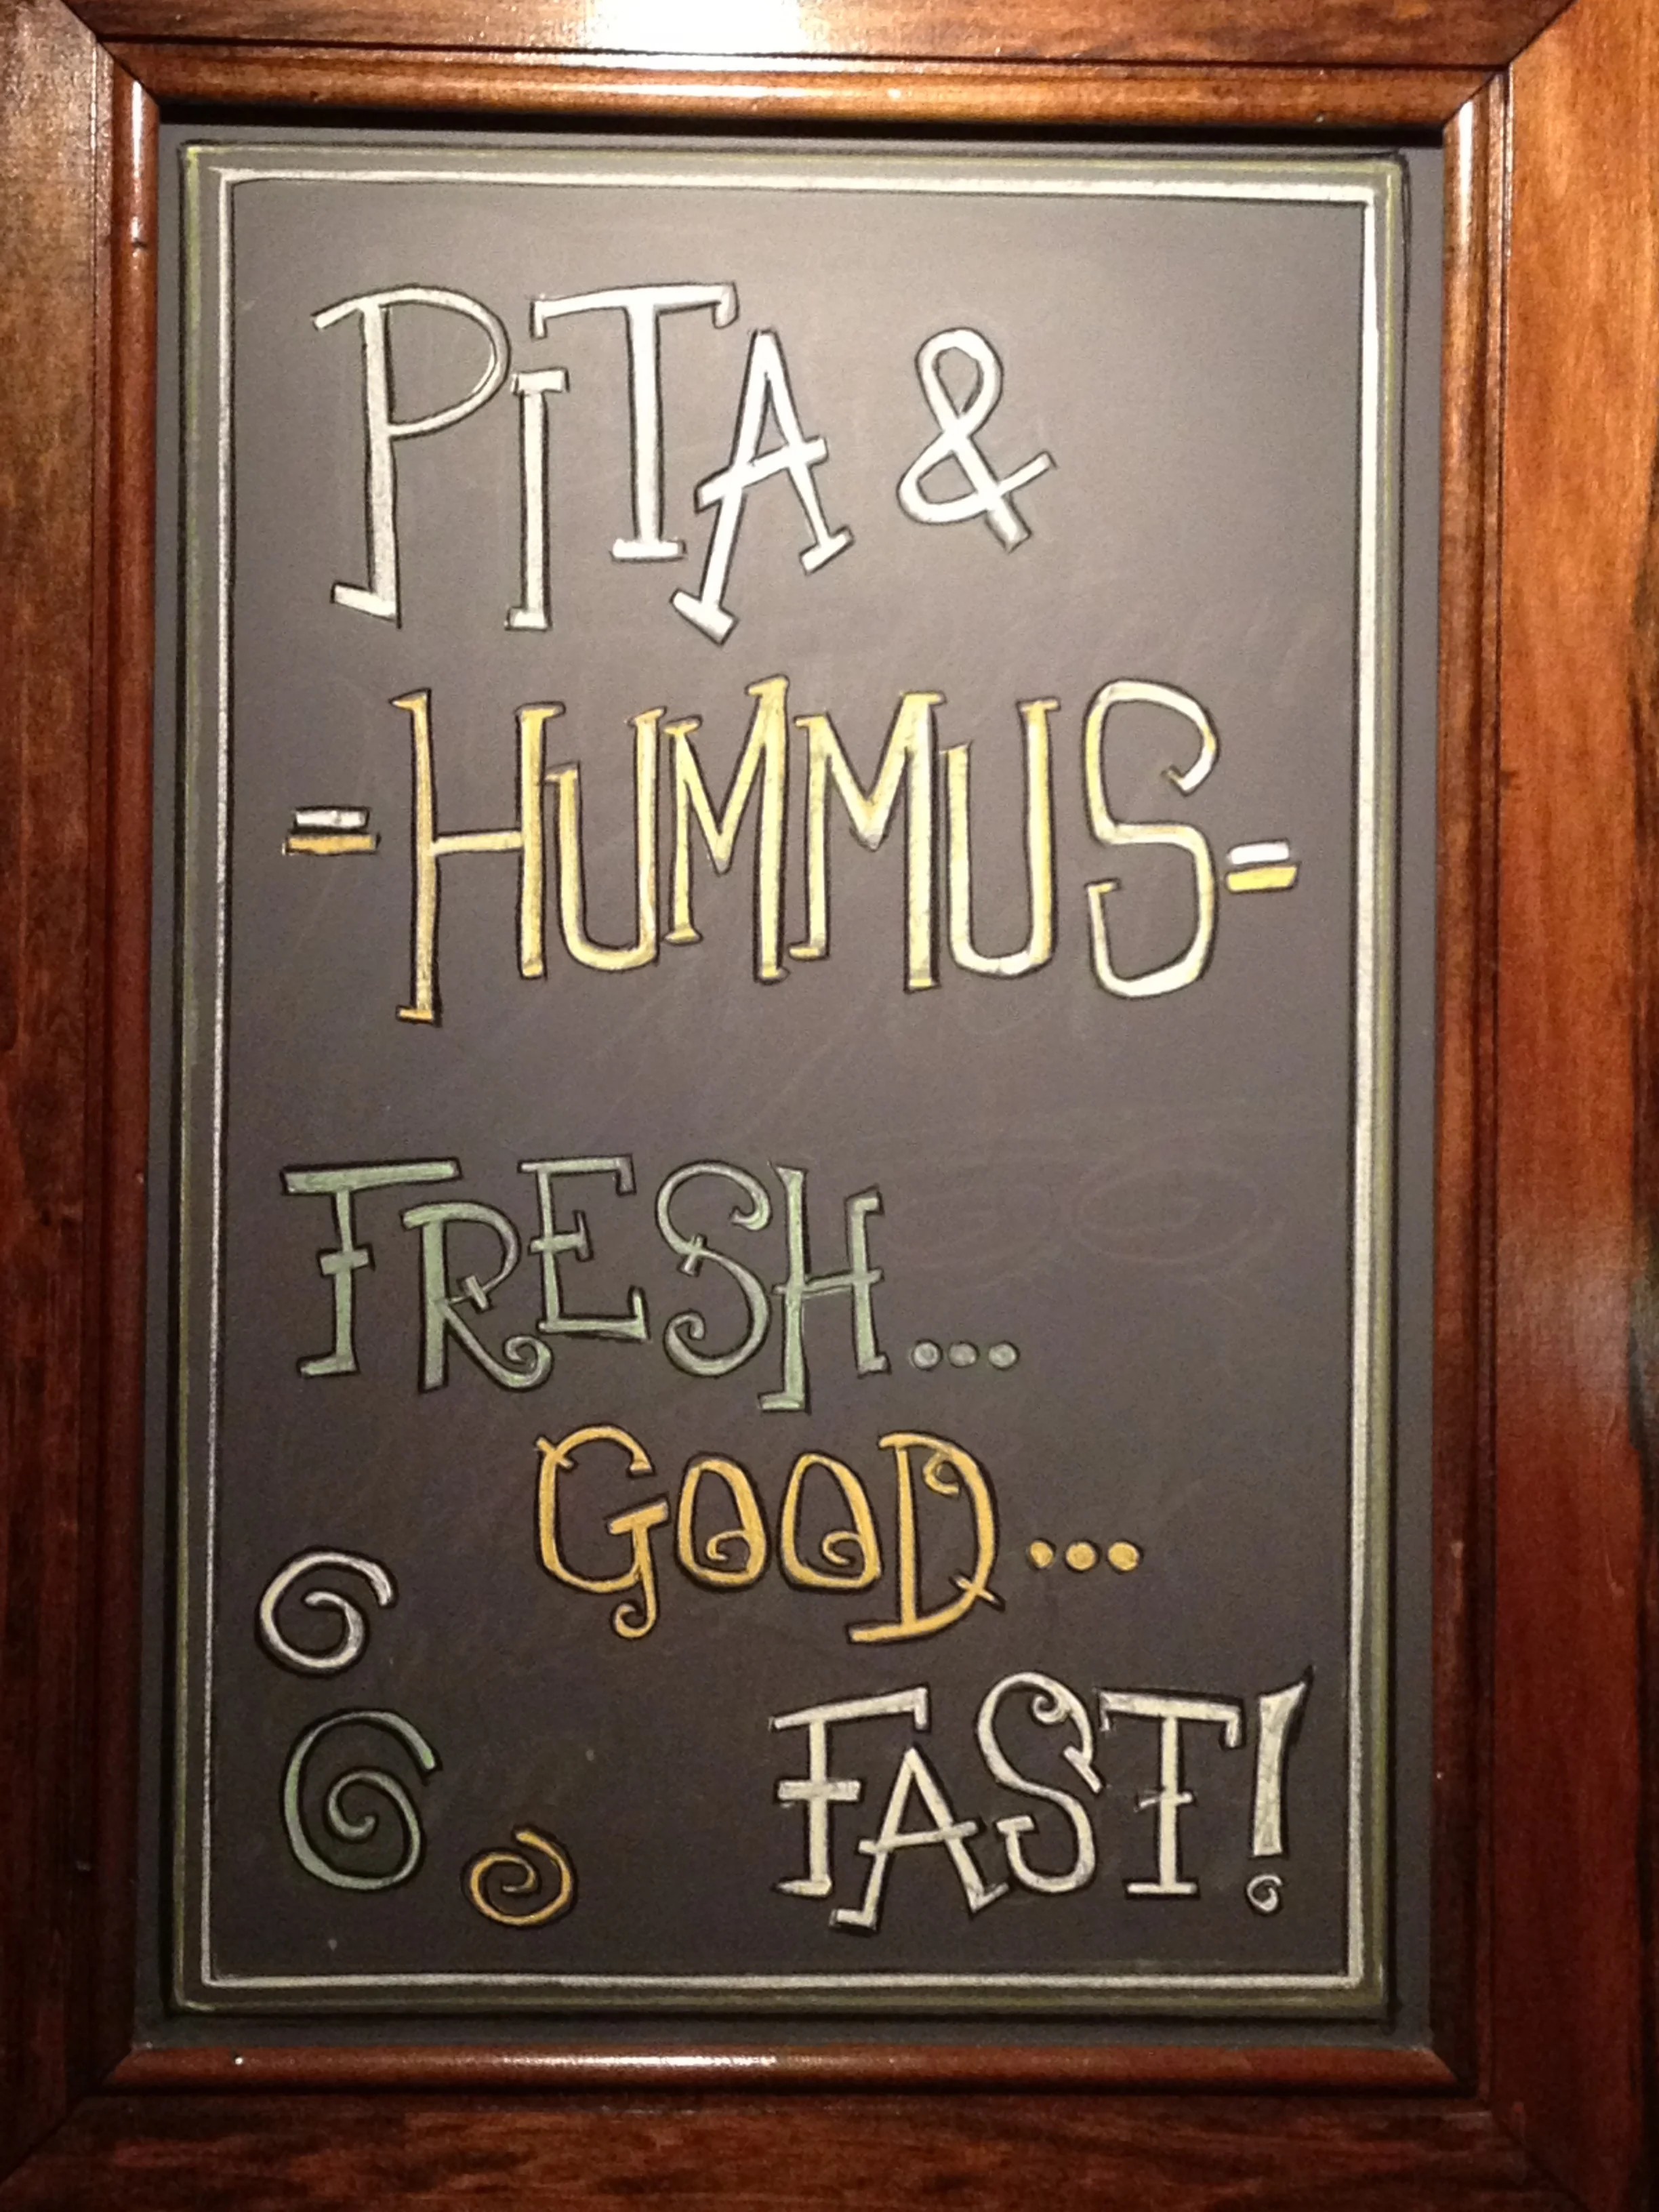 PiTA &
=HUMMUS=
FRESH...
GOOD...
FAST!